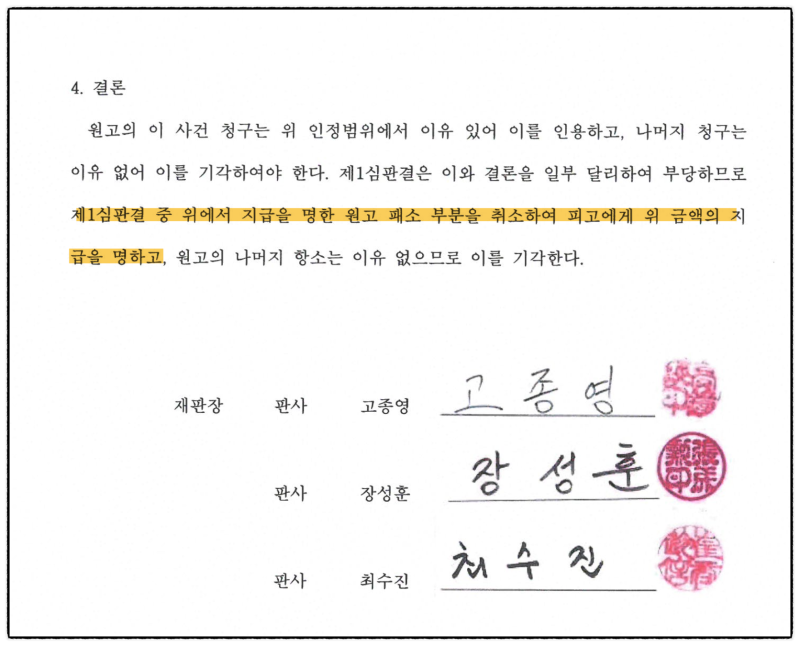 4. 결론
원고의 이 사건 청구는 위 인정범위에서 이유 있어 이를 인용하고, 나머지 청구는
이유 없어 이를 기각하여야 한다. 제1심판결은 이와 결론을 일부 달리하여 부당하므로
제1심판결 중 위에서 지급을 명한 원고 패소 부분을 취소하여 피고에게 위 금액의 지
급을 명하고, 원고의 나머지 항소는 이유 없으므로 이를 기각한다.
재판장 판사 고종영 고종영
판사 장성훈 장성훈
판사 최수진 최수진